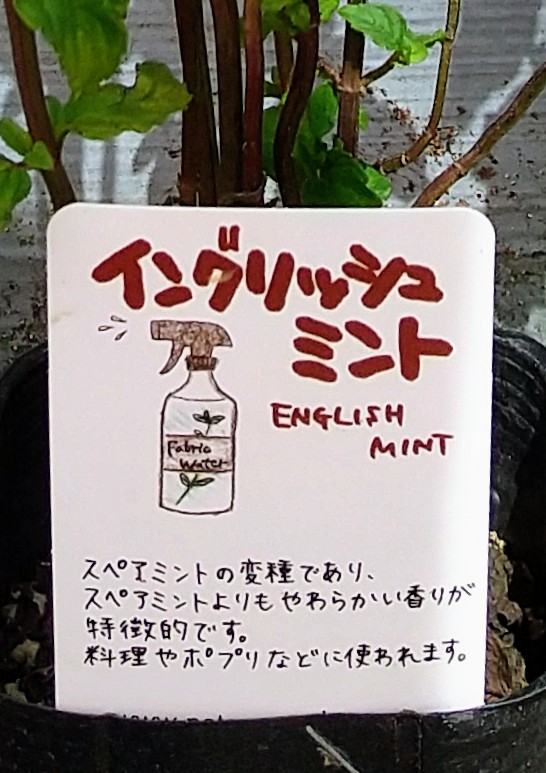 イングリッシュ
ミント
ENGLISH
MINT
Fabric
Water
スペアミントの変種であり、
スペアミントよりもやわらかい香りが
特徴的です。
料理やポプリなどに使われます。